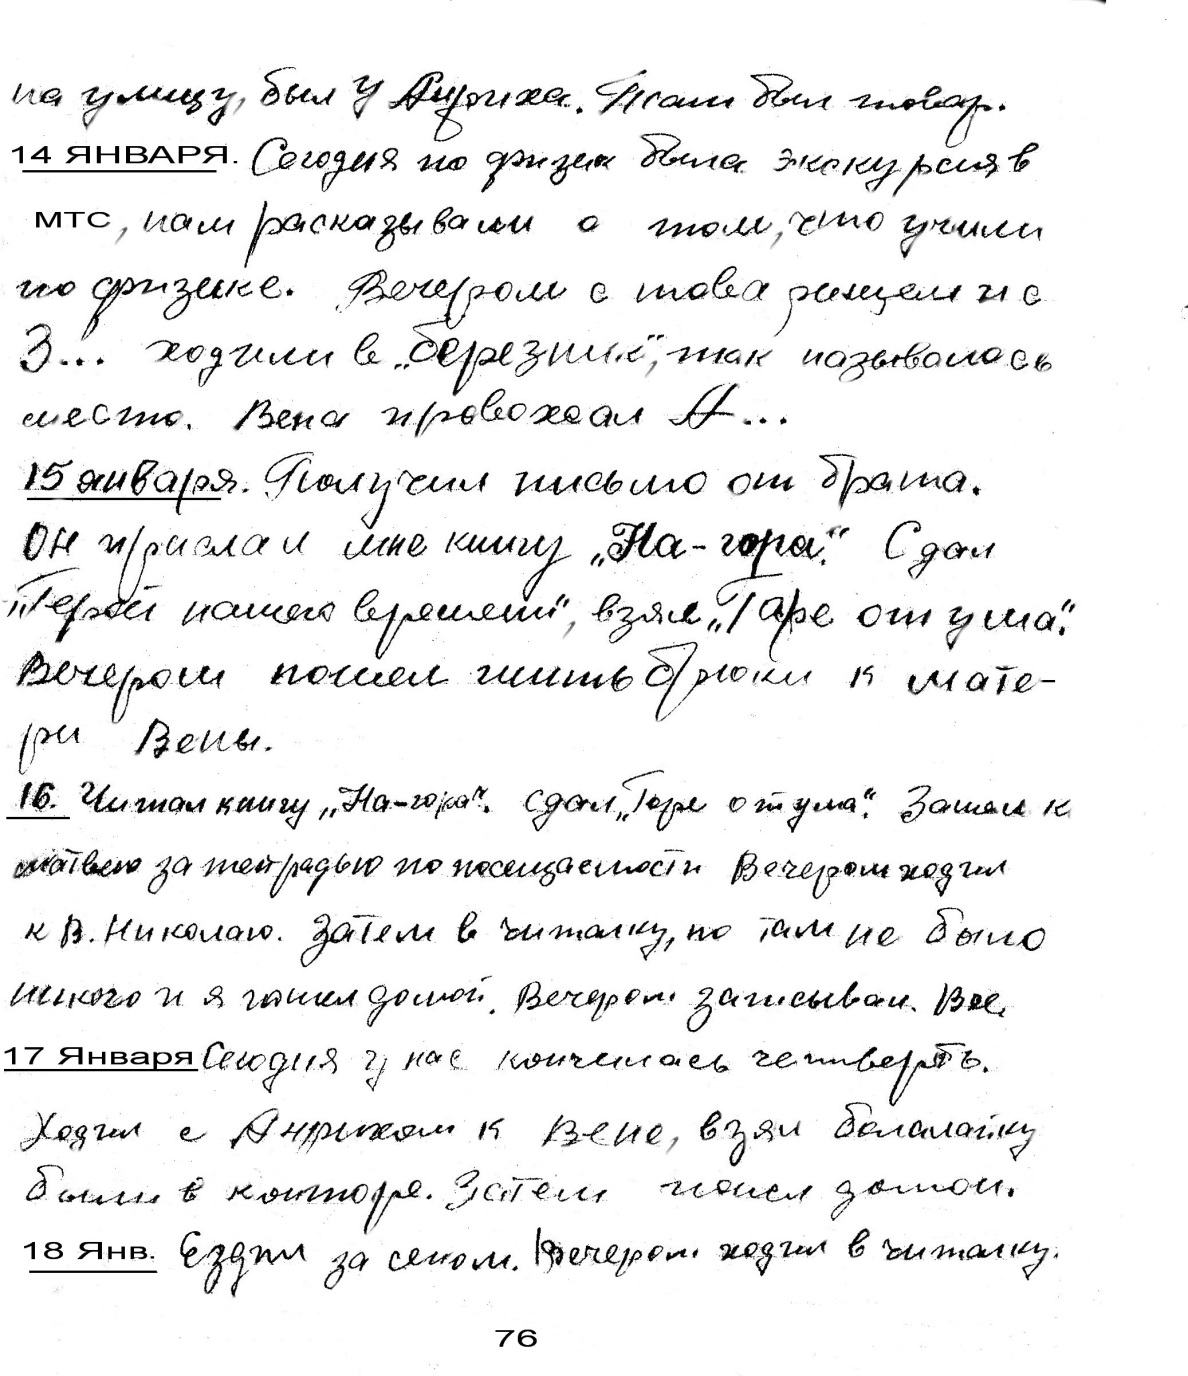 на улицу, был у Анриха. Там был товар.
14 ЯНВАРЯ. Сегодня по физик была экскурсия в
МТС, нам рассказывали о том, что учили
по физике. Вечером с товарищем и с
З... ходили в „березник", так называлось
место. Вена провожал А...
15 января. Получил письмо от брата.
Он прислал мне книгу „На-гора". Сдал
„Герой нашего времени", взял „Горе от ума".
Вечером пошел шить брюки к мате-
ри Вены.
16. Читал книгу „На-гора". Сдал „Горе от ума". Зашел к
Матвею за тетрадью по посещаемости Вечером ходил
к В. Николаю. Затем в читалку, но там не было
никого и я пошел домой. Вечером записывал. Все.
17 Января Сегодня у нас кончилась четверть.
Ходил с Анрихом к Вене, взял балалайку
были в конторе. Затем пошел домой.
18 Янв. Ездил за сеном. Вечером ходил в читалку.
76